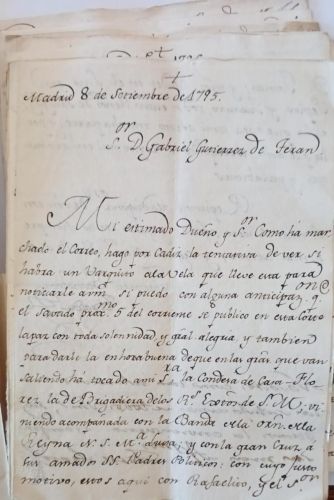 Madrid 8 de Setiembre de 1795.
S.or D. Gabriel Gutierrez de Teran
Mi estimado Dueño, y S.or Como ha mar
chado el Correo, hago por Cadiz la tentativa de ver si
habra un Varquito a la Vela que lleve esta para
noticiarle a Vm. si puedo con alguna anticipaz.on q.e
el Savado prox.mo 5 del corriente se publicó en esta Corte
la paz con toda solemnidad, y gral alegria, y tambien
para darle la enhorabuena de que en las grās que van
saliendo ha tocado a mi S.ra la Condesa de Casa-Flo
rez la de Brigadiera de los R.s Exōtos de S. M. vi
niendo acompañada con la Banda de la Orn. de la
Reyna N. S. M.a Luisa; y con la gran Cruz à
su amado SS. Padre Politico: con cuyo justo
motivo, estos aqui con Rafaelito, y el S.or